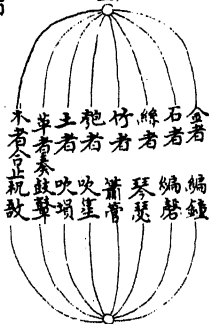 金者 編鐘
石者 編磬
絲者 琴瑟
竹者 簫管
匏者 吹笙
土者 吹塤
革者奏鼓鼙
木者合止柷敔